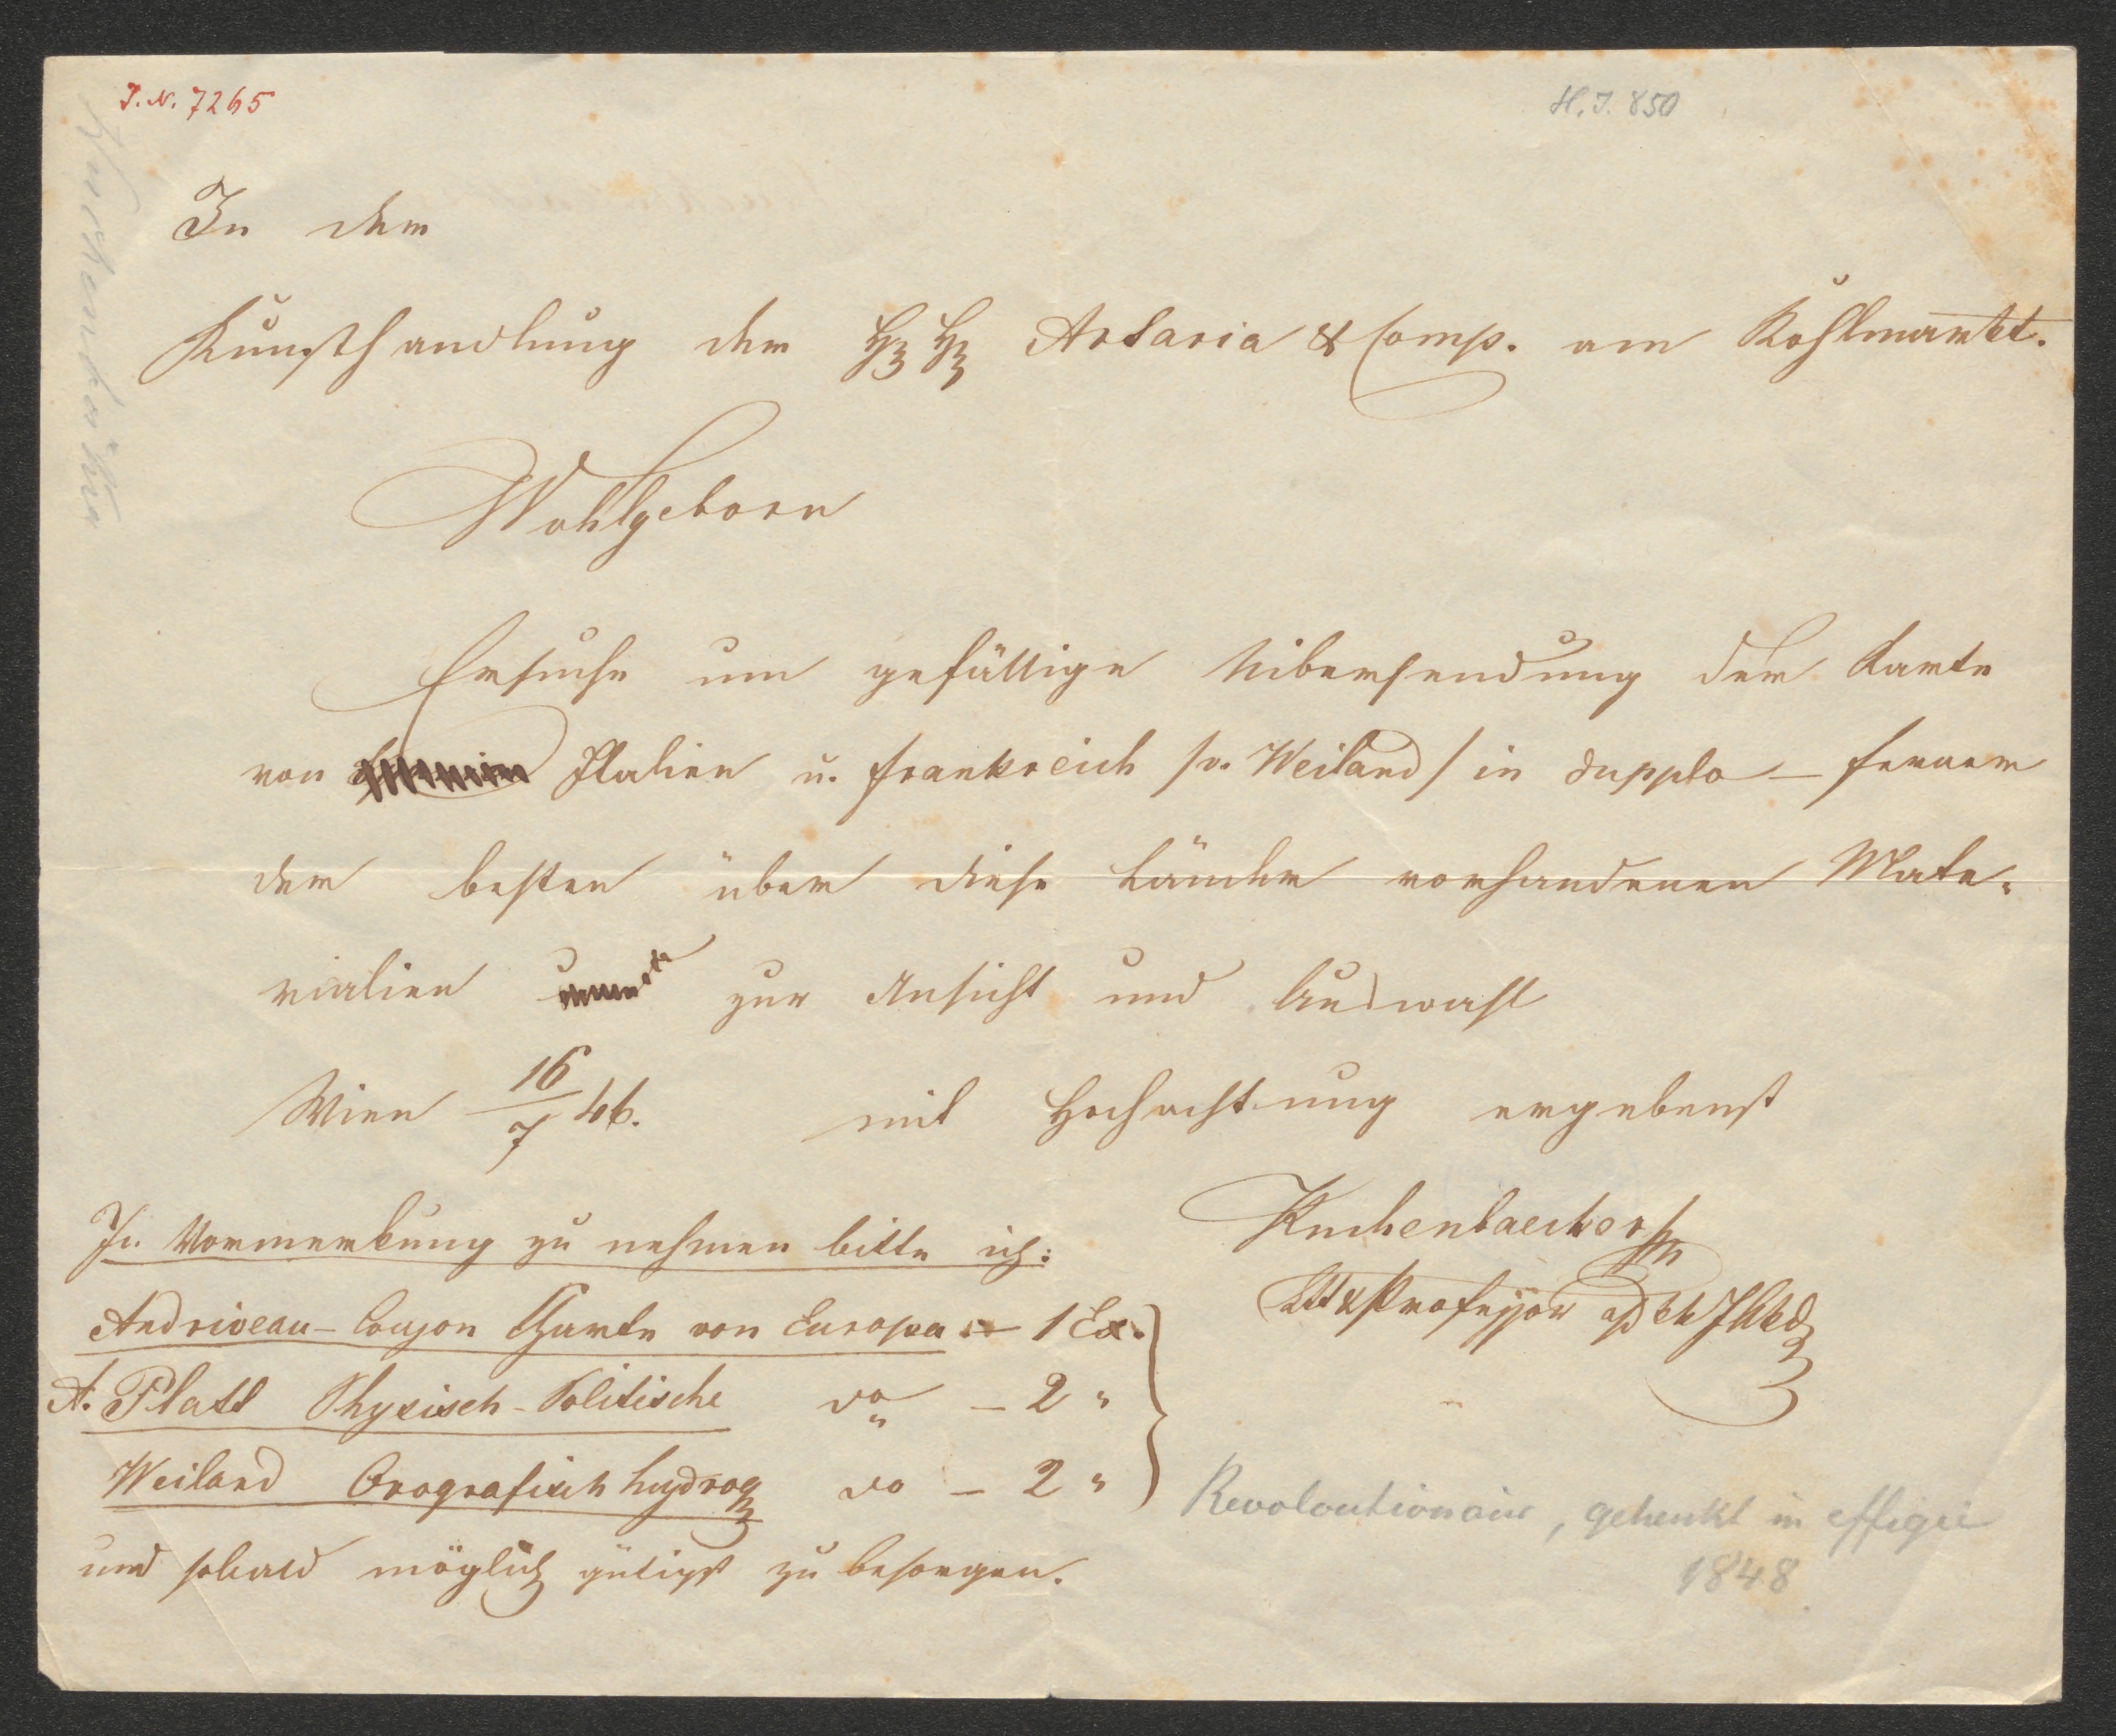 I. N. 7265
H. I. 850
In der
Kunsthandlung der HH Artaria & Comp. am Kohlmarkt.
Wohlgeborn
Ersuche um gefällige Uibersendung der Karte
von Italien u. Frankreich /v. Weiland/ in dupplo – ferner
der besten über diese Länder vorhandenen Mate-
rialien zur Ansicht und Auswahl
Wien 16/7 46. mit Hochachtung ergebenst
Kuchenbaecker
Professor
In Vormerkung zu nehmen bitte ich:
Andriveau-Goujon Charte von Europa – 1 Ex.
A. Platt Physisch-Politische do – 2 "
Weiland Orografisch hydrog do – 2 "
und sobald möglich gütigst zu besorgen.
Revoloutionair, gehenkt in effigie
1848